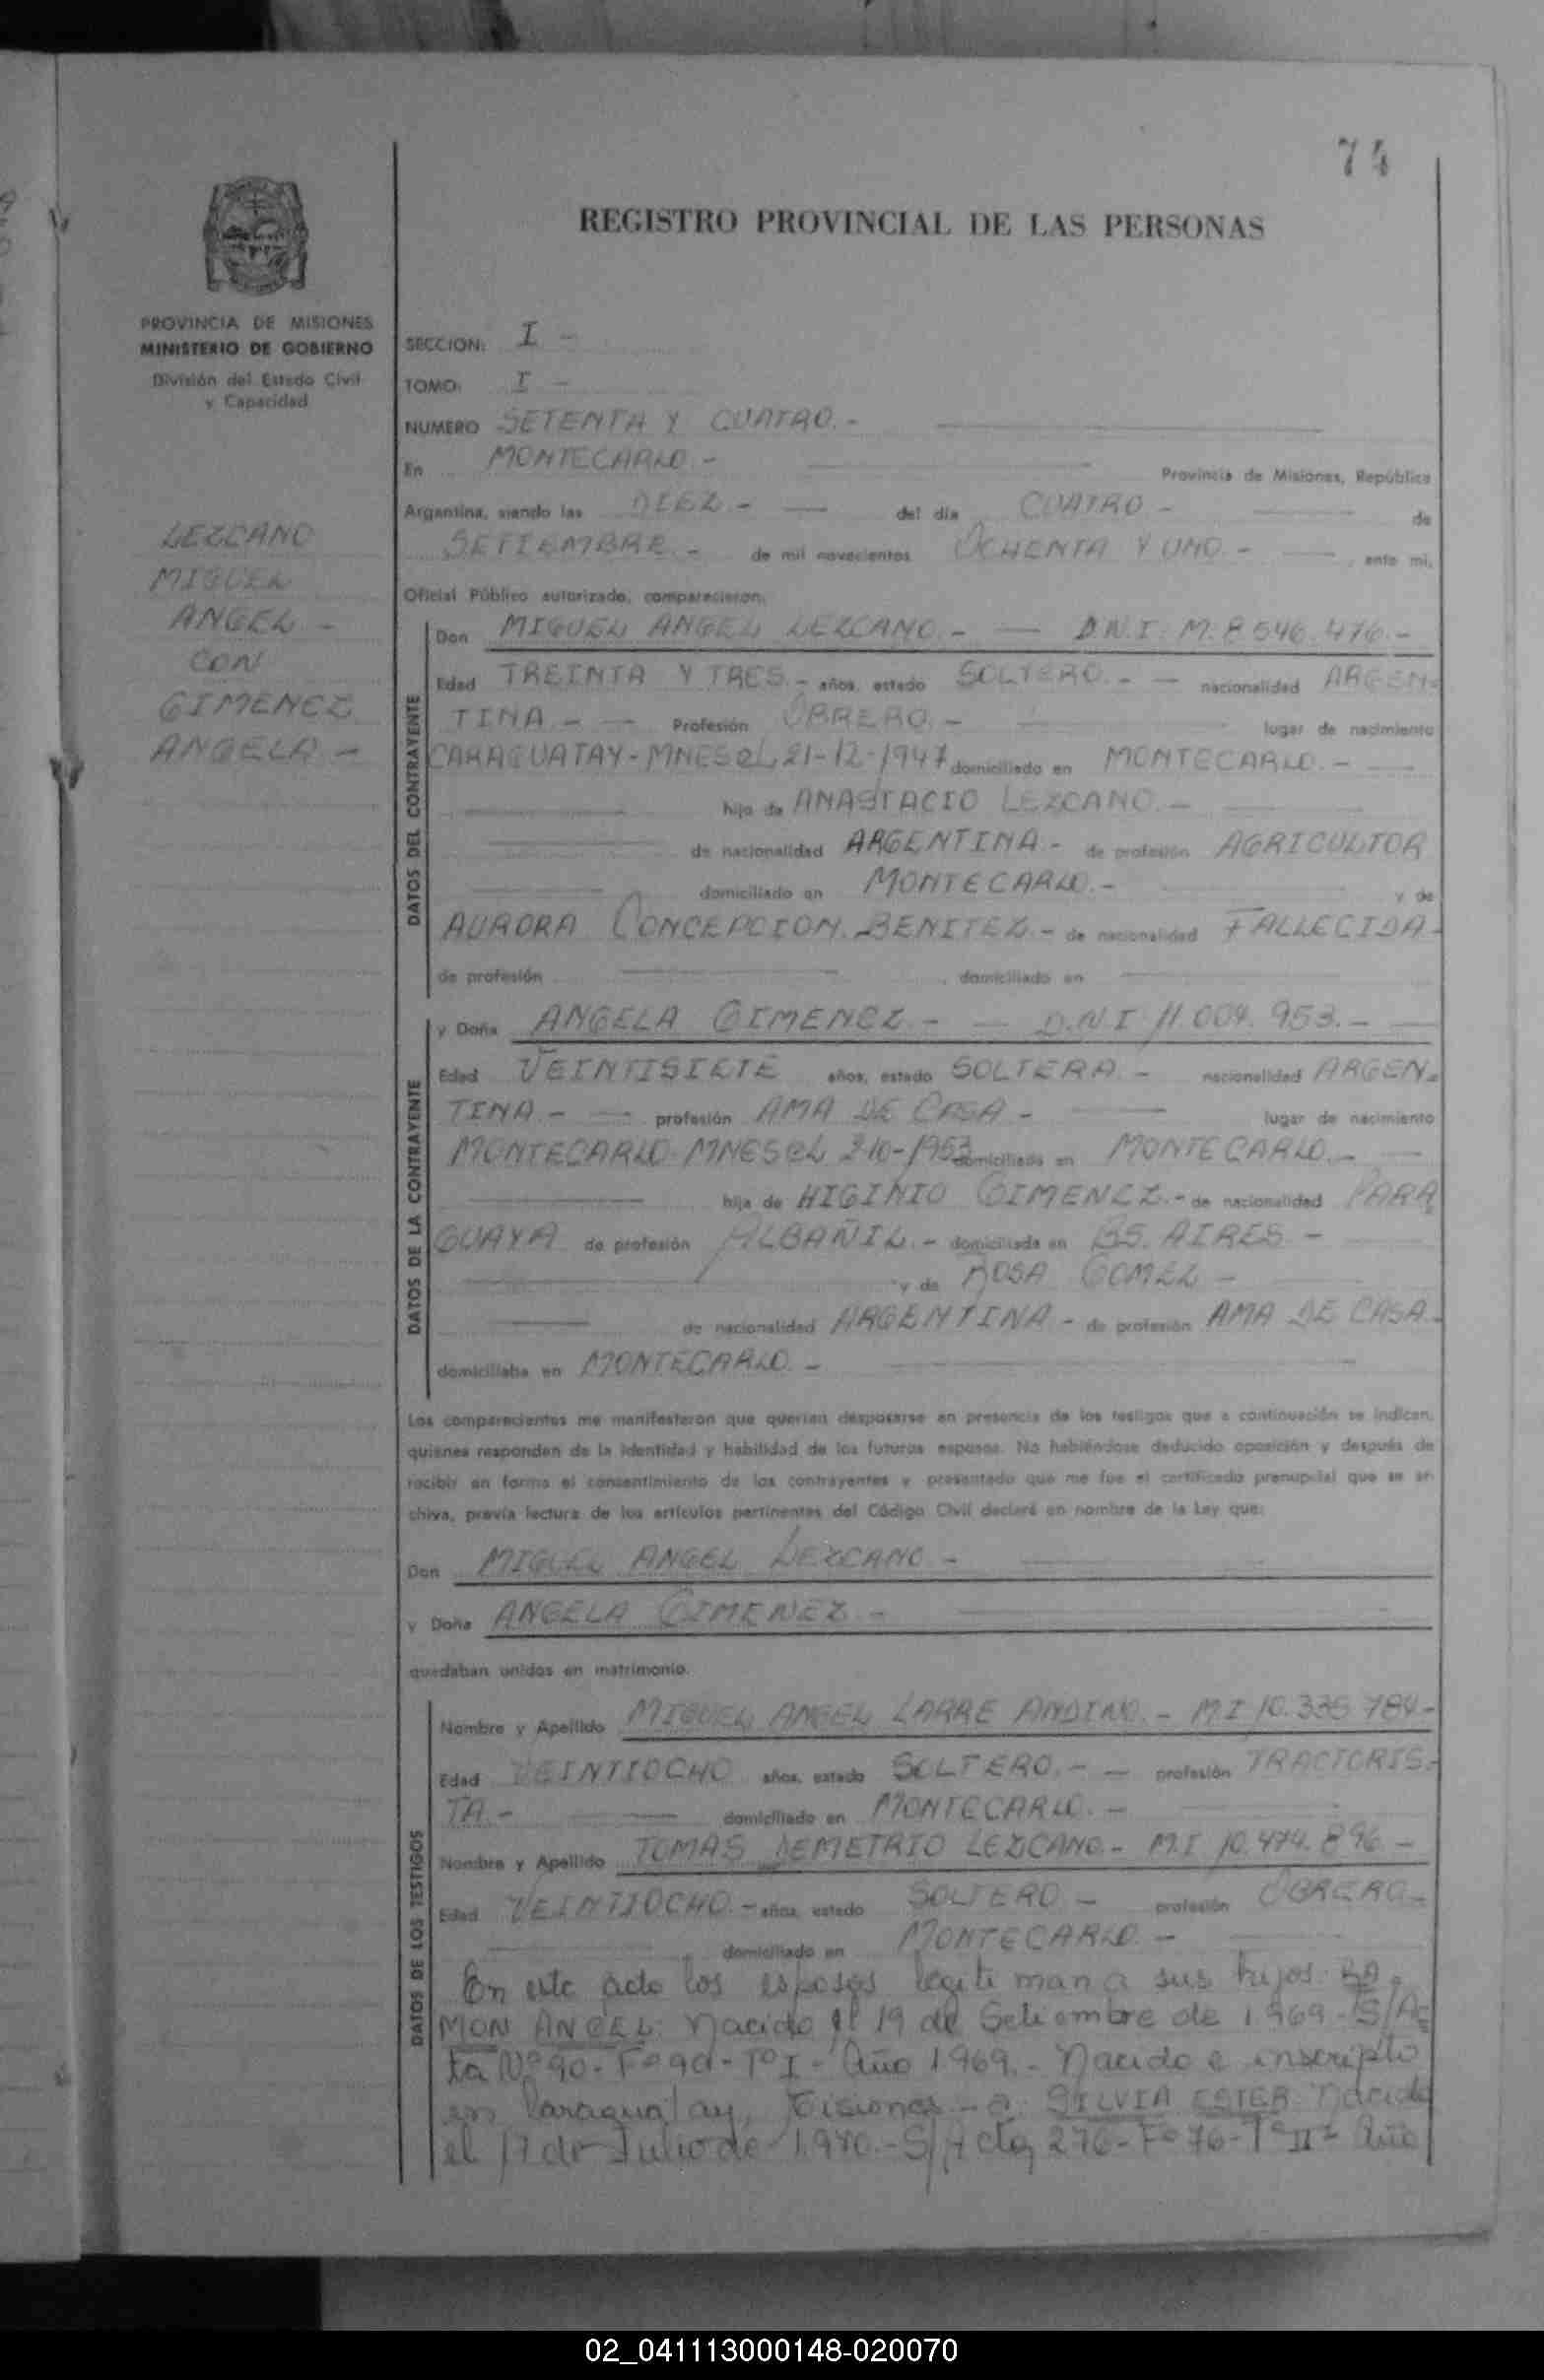 74
REGISTRO PROVINCIAL DE LAS PERSONAS
PROVINCIA DE MISIONES
MINISTERIO DE GOBIERNO
División del Estado Civil
y Capacidad
LEZCANO
MIGUEL
ANGEL -
CON
GIMENEZ
ANGELA -
SECCION: I -
TOMO: I -
NUMERO SETENTA Y CUATRO.-
En MONTECARLO.- Provincia de Misiones, República
Argentina, siendo las DIEZ.- del día CUATRO - de
SETIEMBRE.- de mil novecientos OCHENTA Y UNO.- , ante mi,
Oficial Público autorizado, comparecieron:
DATOS DEL CONTRAYENTE
Don MIGUEL ANGEL LEZCANO.- D.N.I. M. 8.546.476.-
Edad TREINTA Y TRES.- años, estado SOLTERO.- nacionalidad ARGEN-
TINA.- Profesión OBRERO.- lugar de nacimiento
CARAGUATAY-MNES el 21-12-1947 domiciliado en MONTECARLO.-
hijo de ANASTACIO LEZCANO.-
de nacionalidad ARGENTINA.- de profesión AGRICULTOR
domiciliado en MONTECARLO.- y de
AURORA CONCEPCION BENITEZ.- de nacionalidad FALLECIDA-
de profesión , domiciliado en
DATOS DE LA CONTRAYENTE
y Doña ANGELA GIMENEZ - D.N.I. 11.004.953.-
Edad VEINTISIETE años, estado SOLTERA.- nacionalidad ARGEN-
TINA.- profesión AMA DE CASA - lugar de nacimiento
MONTECARLO-MNES el 2-10-1953 domiciliada en MONTECARLO.-
hija de HIGINIO GIMENEZ.- de nacionalidad PARA
GUAYA de profesión ALBAÑIL.- domiciliado en BS. AIRES.-
y de ROSA GOMEZ -
de nacionalidad ARGENTINA - de profesión AMA DE CASA.
domiciliaba en MONTECARLO -
Los comparecientes me manifestaron que querían desposarse en presencia de los testigos que a continuación se indican,
quienes responden de la identidad y habilidad de los futuros esposos. No habiéndose deducido oposición y después de
recibir en forma el consentimiento de los contrayentes y presentado que me fue el certificado prenupcial que se ar-
chiva, previa lectura de los artículos pertinentes del Código Civil declaré en nombre de la Ley que:
Don MIGUEL ANGEL LEZCANO -
y Doña ANGELA GIMENEZ -
quedaban unidos en matrimonio.
DATOS DE LOS TESTIGOS
Nombre y Apellido MIGUEL ANGEL LARRE ANDINO.- M.I 10.335.784-
Edad VEINTIOCHO años, estado SOLTERO.- profesión TRACTORIS-
TA.- domiciliado en MONTECARLO.-
Nombre y Apellido TOMAS DEMETRIO LEZCANO.- M.I 10.474.896-
Edad VEINTIOCHO.- años, estado SOLTERO.- profesión OBRERO-
domiciliado en MONTECARLO.-
En este acto los esposos legitiman a sus hijos: RA-
MON ANGEL: Nacido el 19 de Setiembre de 1969.- S/Ac
ta Nº 90- Fº 90- Tº I- Año 1969.- Nacido e inscripto
en Caraguatay, Misiones - a: SILVIA ESTER: Nacida
el 17 de Julio de 1.970.- S/Acta 276- Fº 76- Tº II- Año
02_041113000148-020070